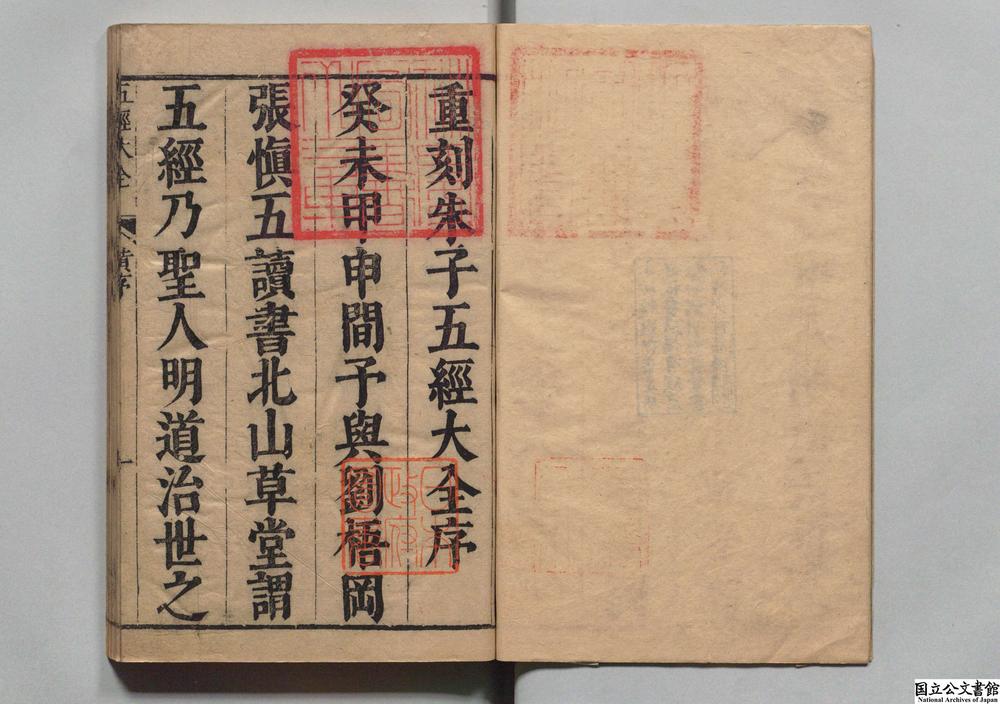 重刻朱子五經大全序
癸未甲申間予與劉梧岡
張愼五讀書北山草堂謂
五經乃聖人明道治世之
五經大全
黄序
一
日本
政府
國立公文書館
National Archives of Japan